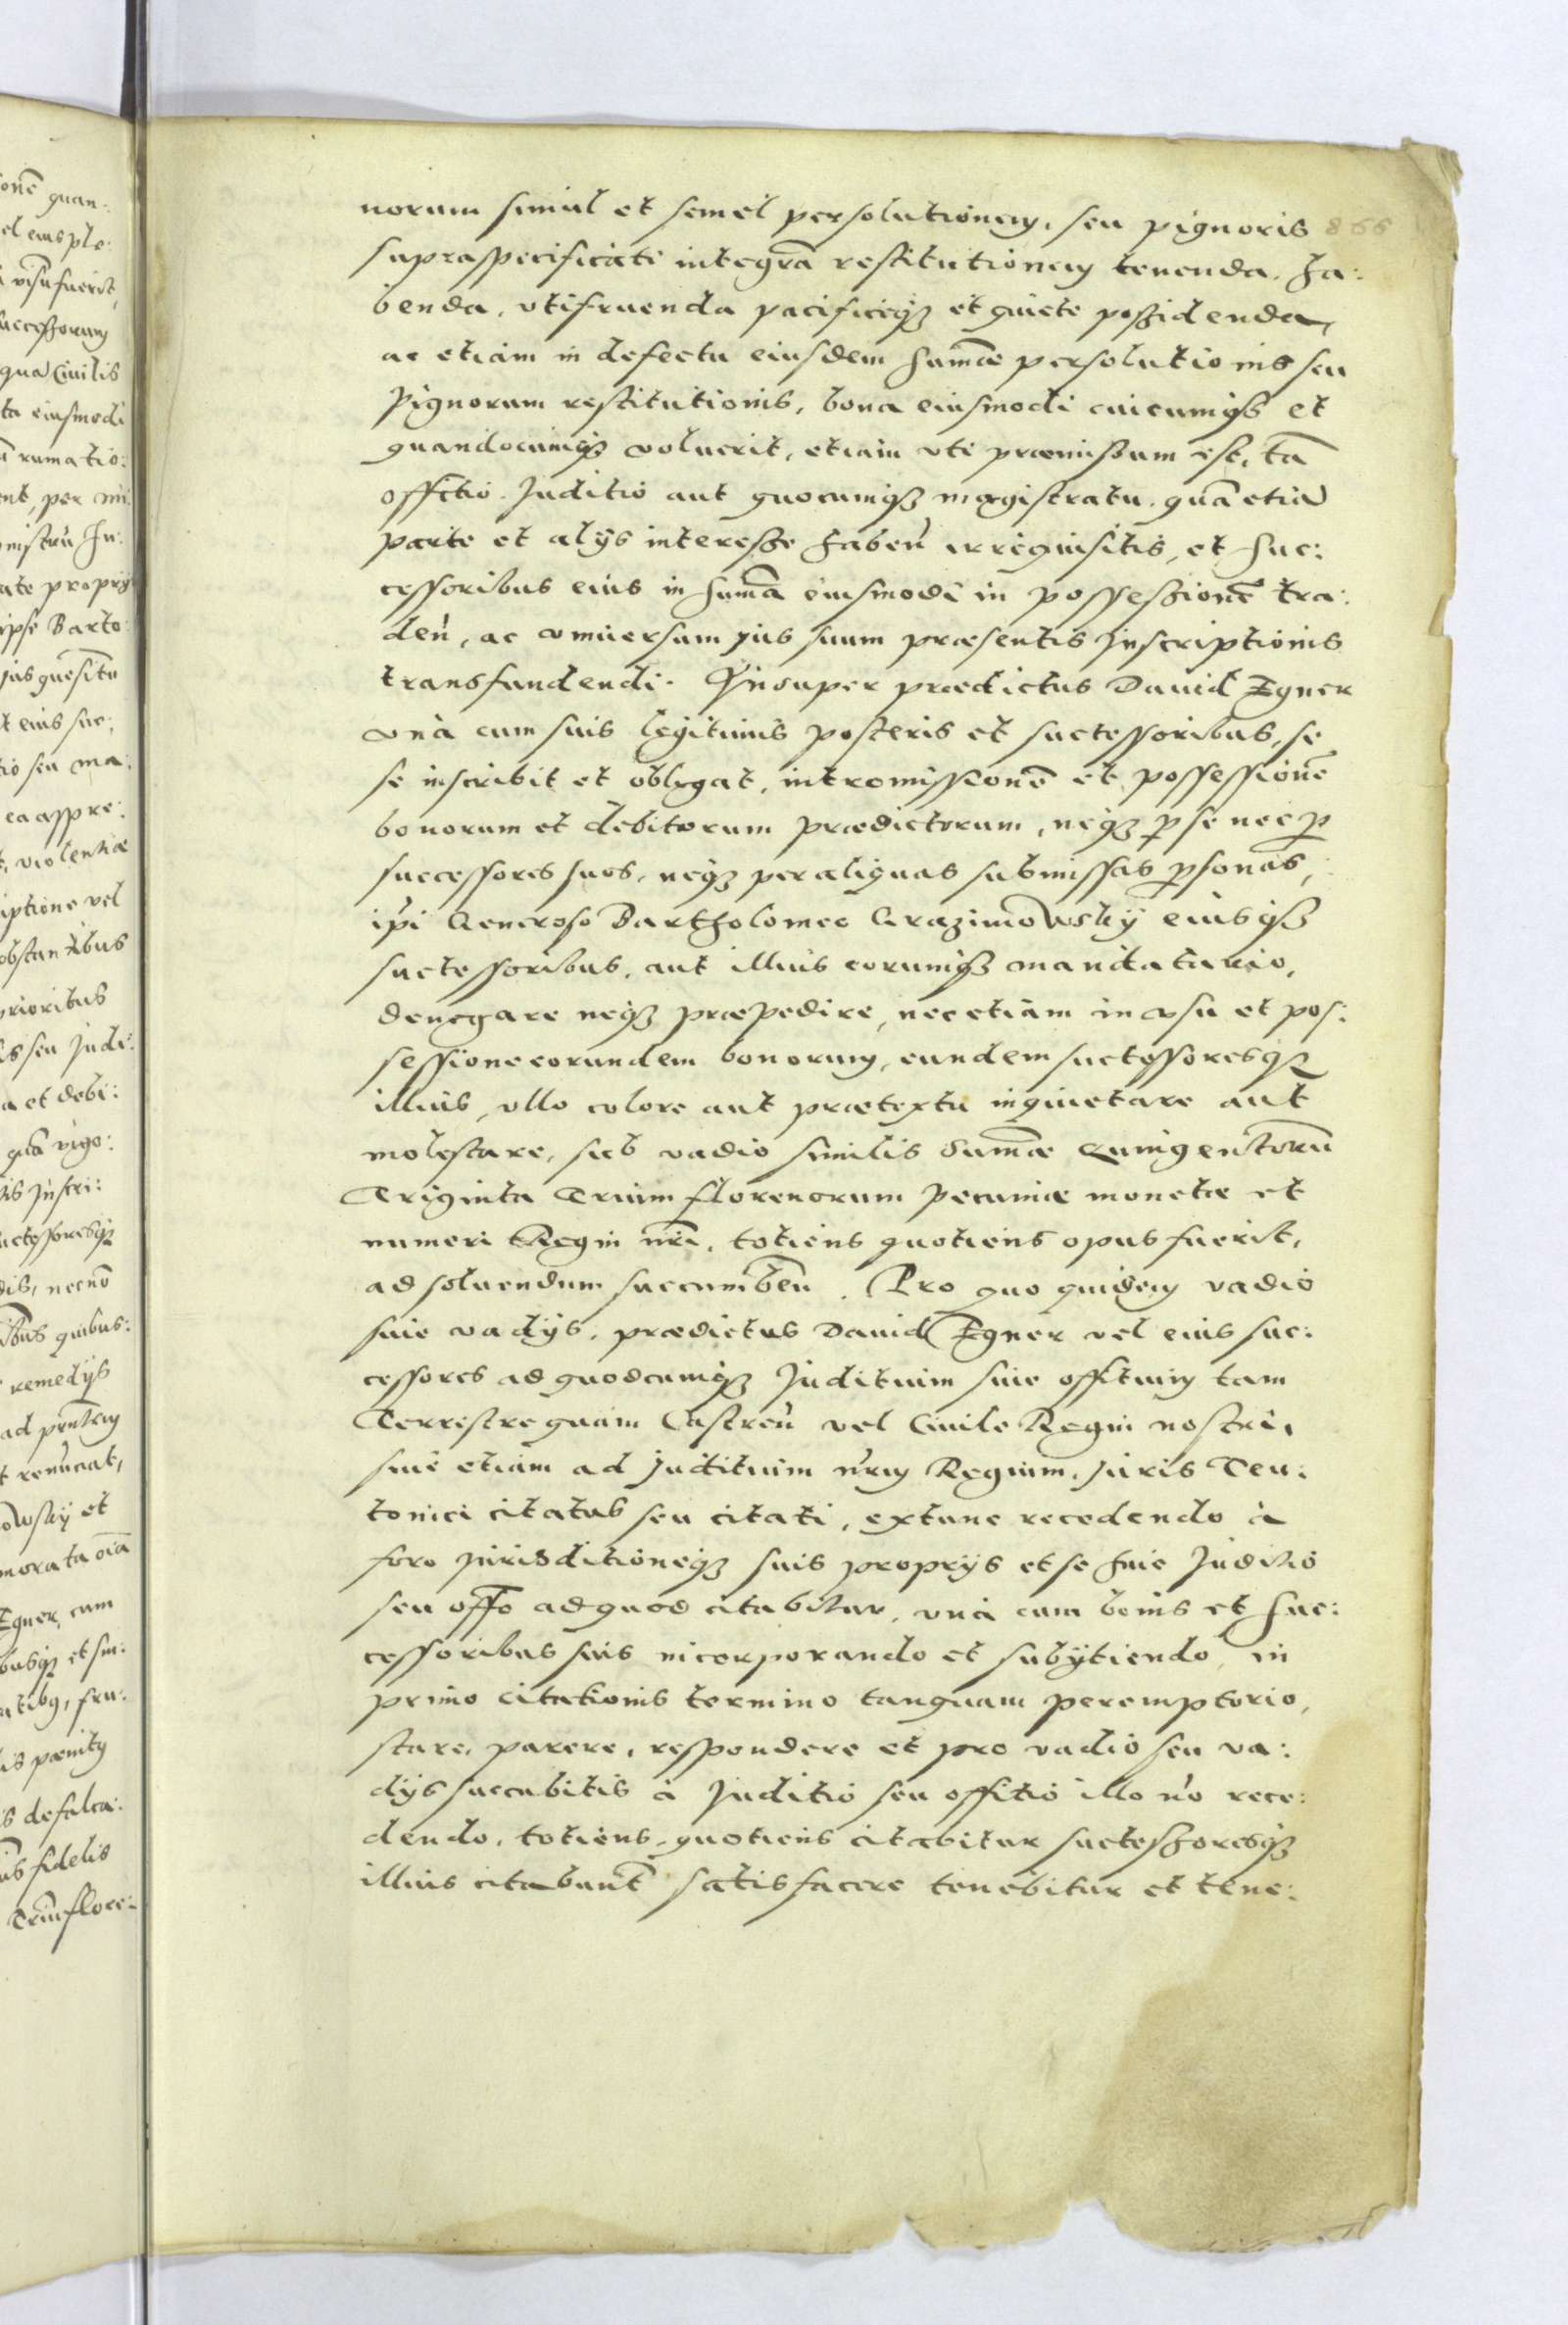 norum simul et semel persolutionem, seu pignoris 866
supraspecificati integrã restitutionem tenenda, ha:
benda, vtifruenda pacificeq3 et quiete possidenda,
ac etiam in defectu eiusdem summæ persolutionis seu
pignorum restitutionis, bona eiusmodi cuicumq3 et
quandocumq3 voluerit, etiam vti præmissum est, tã
offitio Juditio aut quocumq3 magistratu, quã etiã
parte et alijs interesse haben̄ irrequisitis, et suc:
cessoribus eius in sum̃a eiusmodi in possessionẽ tra:
den̄, ac vniuersum jus suum præsentis Inscriptionis
transfundendi. Insuper prædictus Dauid Egner
vnà cum suis legitimis posteris et successoribus, se
se inscribit et obligat, intromissionẽ et possessionẽ
bonorum et debitorum prædictorum, neq3 p̱ se nec p̱
successores suos, neq3 per aliquas submissas p̱sonas,
ip̃i Generoso Bartholomeo Grazimowsky eiusq3
successoribus, aut illius eorumq3 mandatario,
denegare neq3 præpedire, nec etiam in vsu et pos:
sessione eorundem bonorum, eundem successoresq3
illius, vllo colore aut prætextu inquietare aut
molestare, sub vadio similis Summæ Quingentorũ
Triginta Trium florenorum pecuniæ monetæ et
numeri Regni nr̃i, totiens quotiens opus fuerit,
ad soluendum succumben̄. Pro quo quidem vadio
siue vadijs, prædictus Dauid Egner vel eius suc:
cessores ad quodcumq3 Juditium siue offitium tam
Terrestre quam Castren̄ vel Ciuile Regni nostri,
siue etiam ad Juditium nr̃um Regium, Juris Teu:
tonici citatus seu citati, extunc recedendo à
foro Jurisditioneq3 suis proprijs et se huic Juditio
seu offo ad quod citabitur, vnà cum bonis et suc:
cessoribus suis incorporando et subijtiendo, in
primo citationis termino tanquam peremptorio,
stare, parere, respondere et pro vadio seu va:
dijs succubitis à Juditio seu offitio illo nõ rece:
dendo, totiens, quotiens citabitur successoresq3
illius citabunt̃ satisfacere tenebitur et tene: